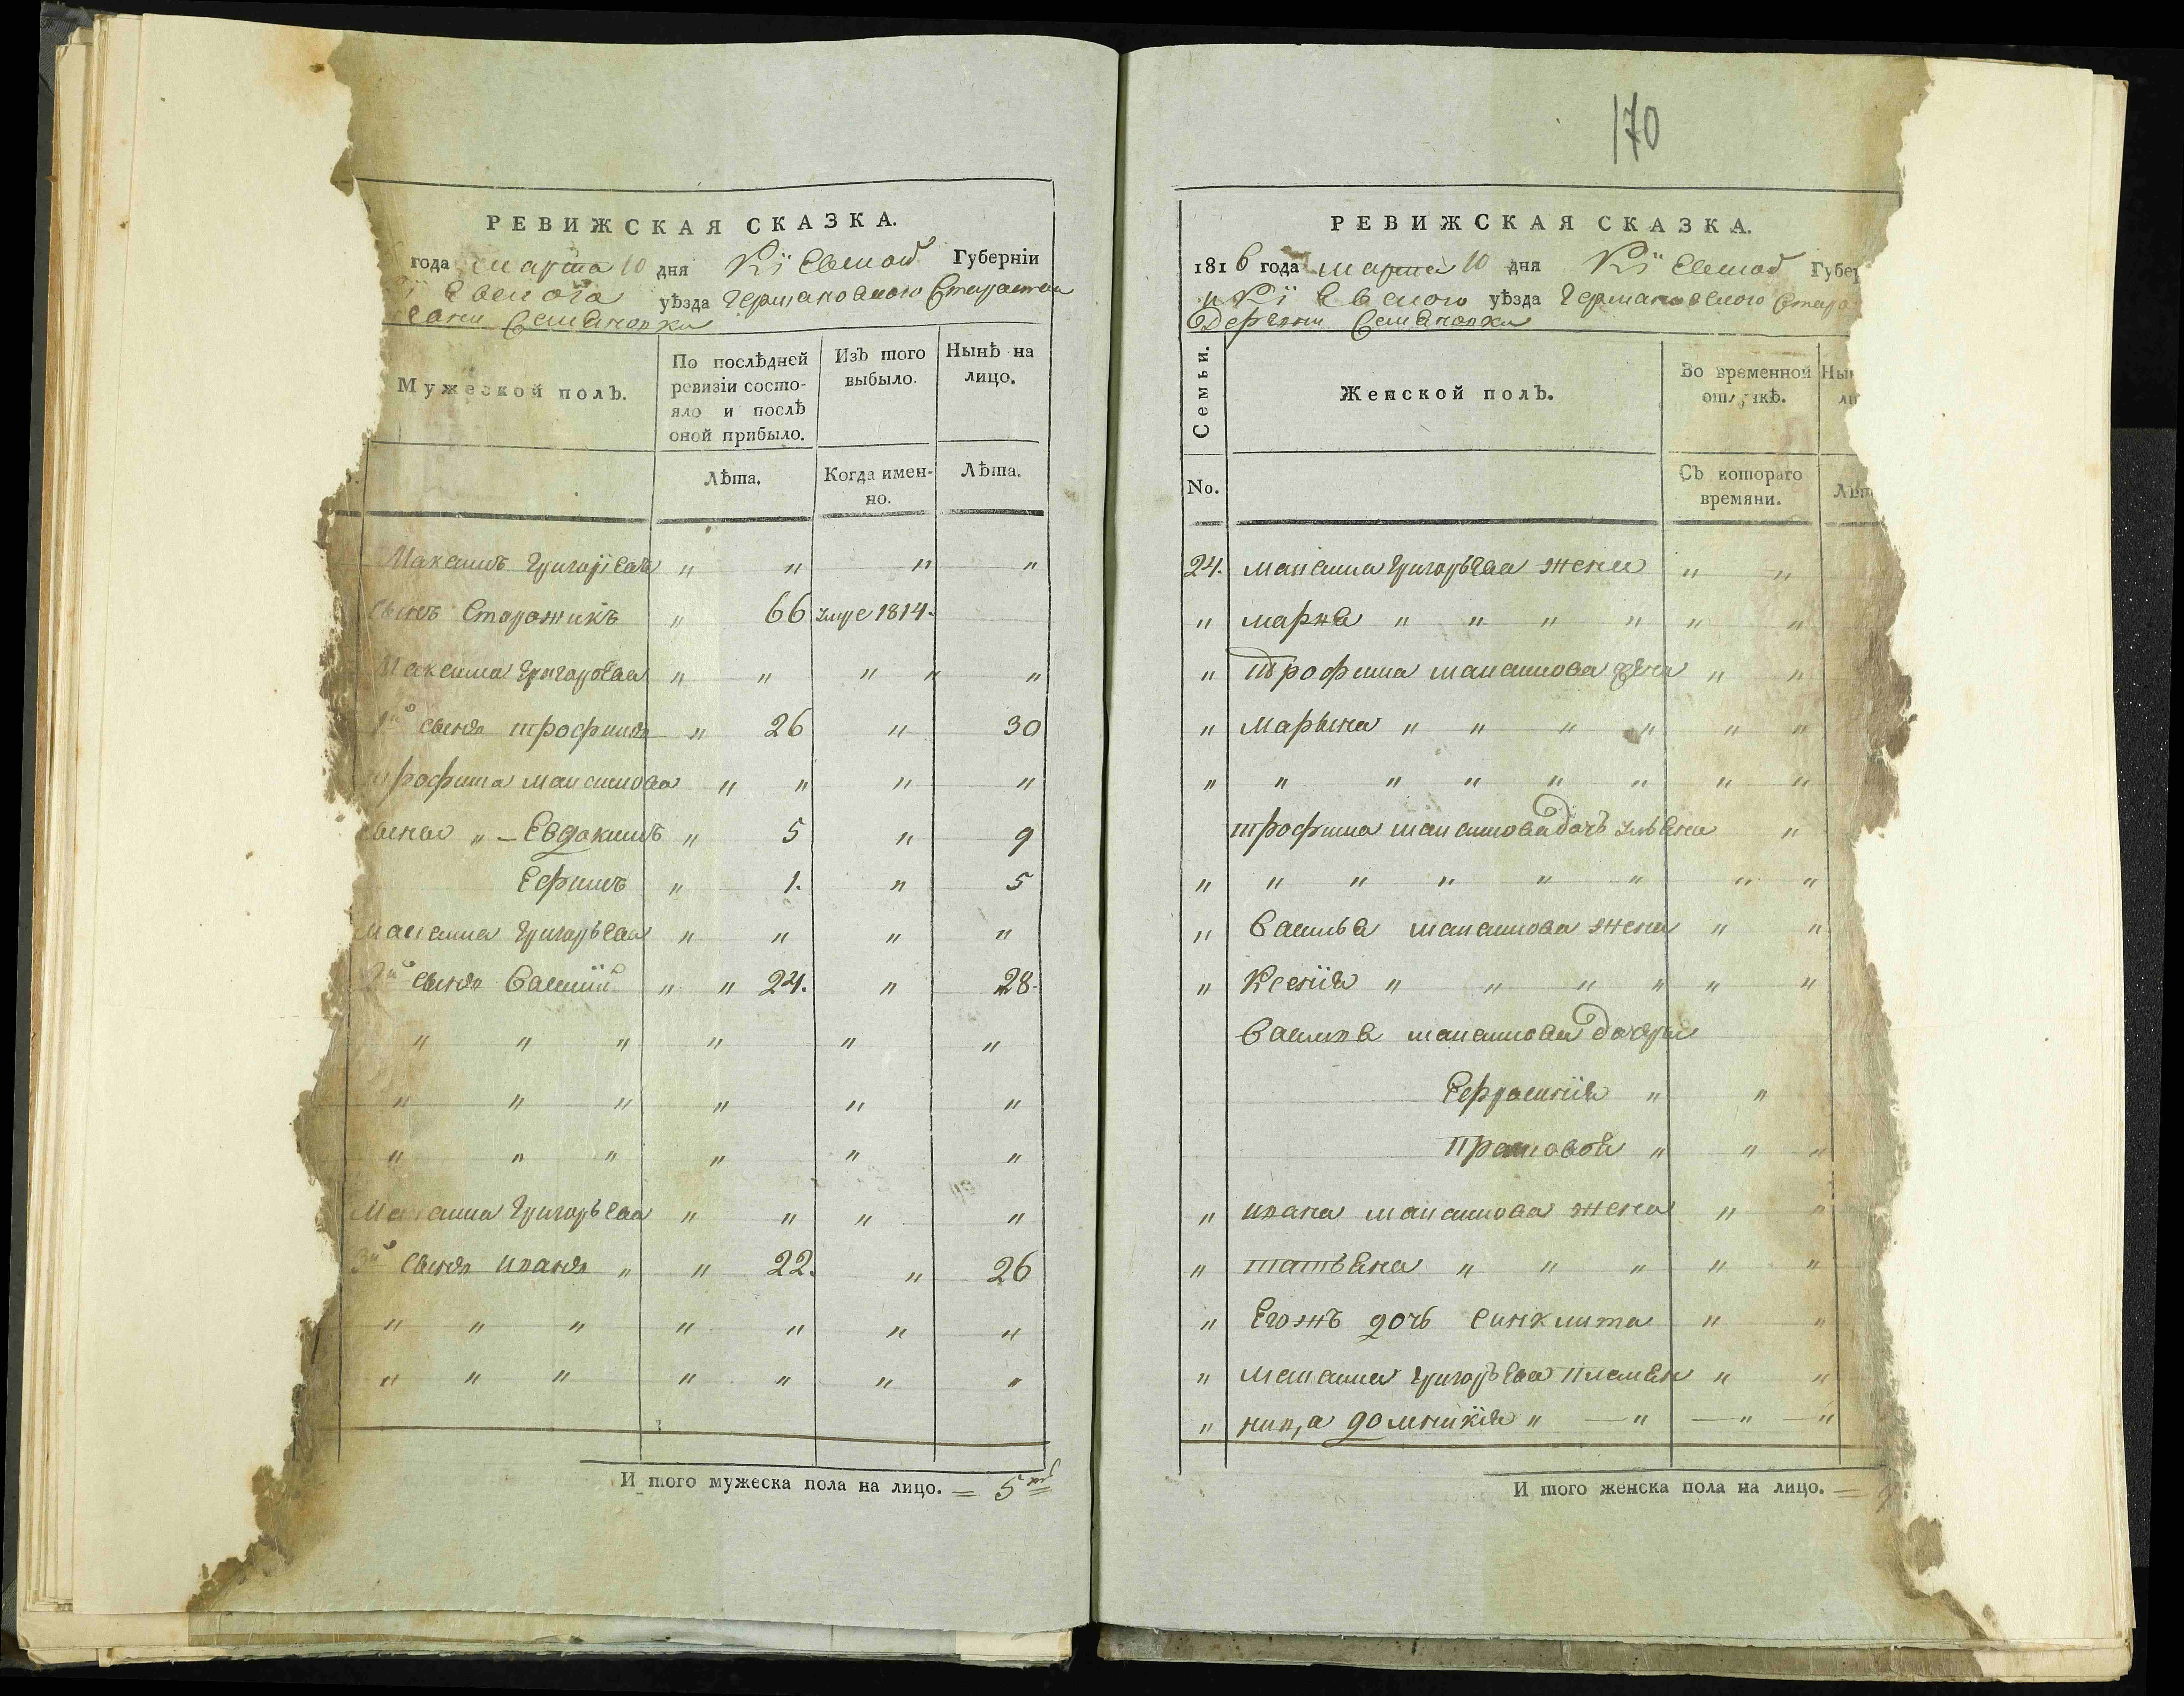 РЕВИЖСКАЯ СКАЗКА.
года марта 10 дня Кіевской Губерніи
уѣзда Германовского Староства
Семеновки
Мужеской полъ.
По послѣдней ревизіи состо-
яло и послѣ оной прибыло.
Изъ того выбыло.
Нынѣ на лицо.
Лѣта.
Когда имен-
но.
Лѣта.
Максимъ Григорїевъ " " " "
сынъ Сторожикъ " 66 умре 1814.
Максима Григорьева " " " " "
1й сынъ трофимъ " 26 " 30
трофима максимова " " " "
сыны " - Евдокимъ " 5 " 9
Ефимъ " 1. " 5
максима Григорьева " " " "
2й сынъ Василий " " 24. " 28.
" " " " " "
" " " " " "
" " " " " "
Максима Григорьева " " " "
3й сынъ иванъ " " 22. " 26
" " " " " " "
" " " " " " "
И того мужеска пола на лицо. = 5ть
170
РЕВИЖСКАЯ СКАЗКА.
1816 года марта 10 дня Кїевской Губер
и Кї евского уѣзда Германовского Старо
Деревни Семеновки
Семьи.
Женской полъ.
Во временной отлучкѣ.
Нын
ли
No.
Съ котораго
времяни.
Лѣт
24. максима Григорьева жена " "
" марья " " " " " "
" трофима максимова жена " "
" марына " " " " " "
" " " " " " " "
трофима максимова дочь "
" " " " " " " "
" Василья максимова жена " "
" Ксенїя " " " " " "
Василья максимова дочери
Ефросинїя " "
Прасковья " " "
" ивана максимова жена " "
" татьяна " " " " "
" Егожъ дочь синклита " "
" максима Григорьева племен " "
" ница домникїя " — " — " — "
И того женска пола на лицо. =